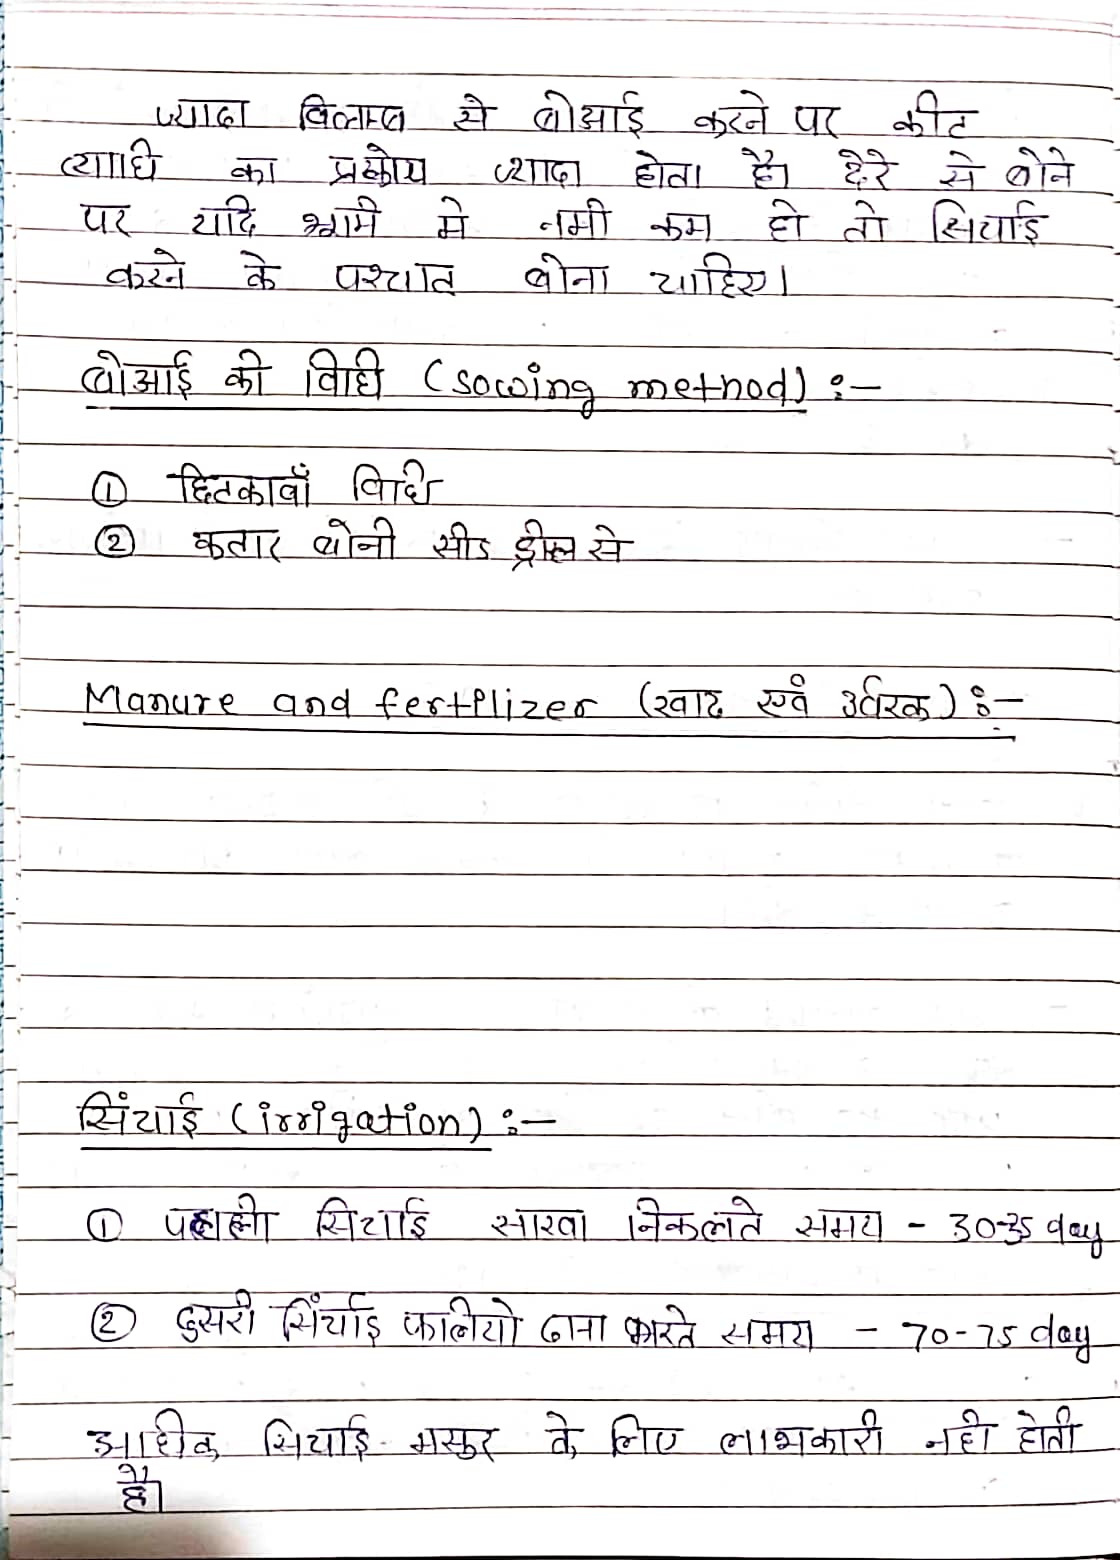 ज्यादा विलम्ब से बोआई करने पर कीट
व्याधि का प्रकोप ज्यादा होता है। देरे से बोने
पर यदि भूमि मे नमी कम हो तो सिचाई
करने के पश्चात बोना चाहिए।
बोआई की विधि (sowing method) :-
① छिटकावाँ विधि
② कतार बोनी सीड ड्रील से
Manure and fertilizer (खाद एवं उर्वरक) :-
सिंचाई (irrigation) :-
① पहली सिचाई साखा निकलते समय - 30-35 day
② दुसरी सिंचाई फलियो दाना भरते समय - 70-75 day
अधीक सिचाई मसुर के लिए लाभकारी नही होती
है।